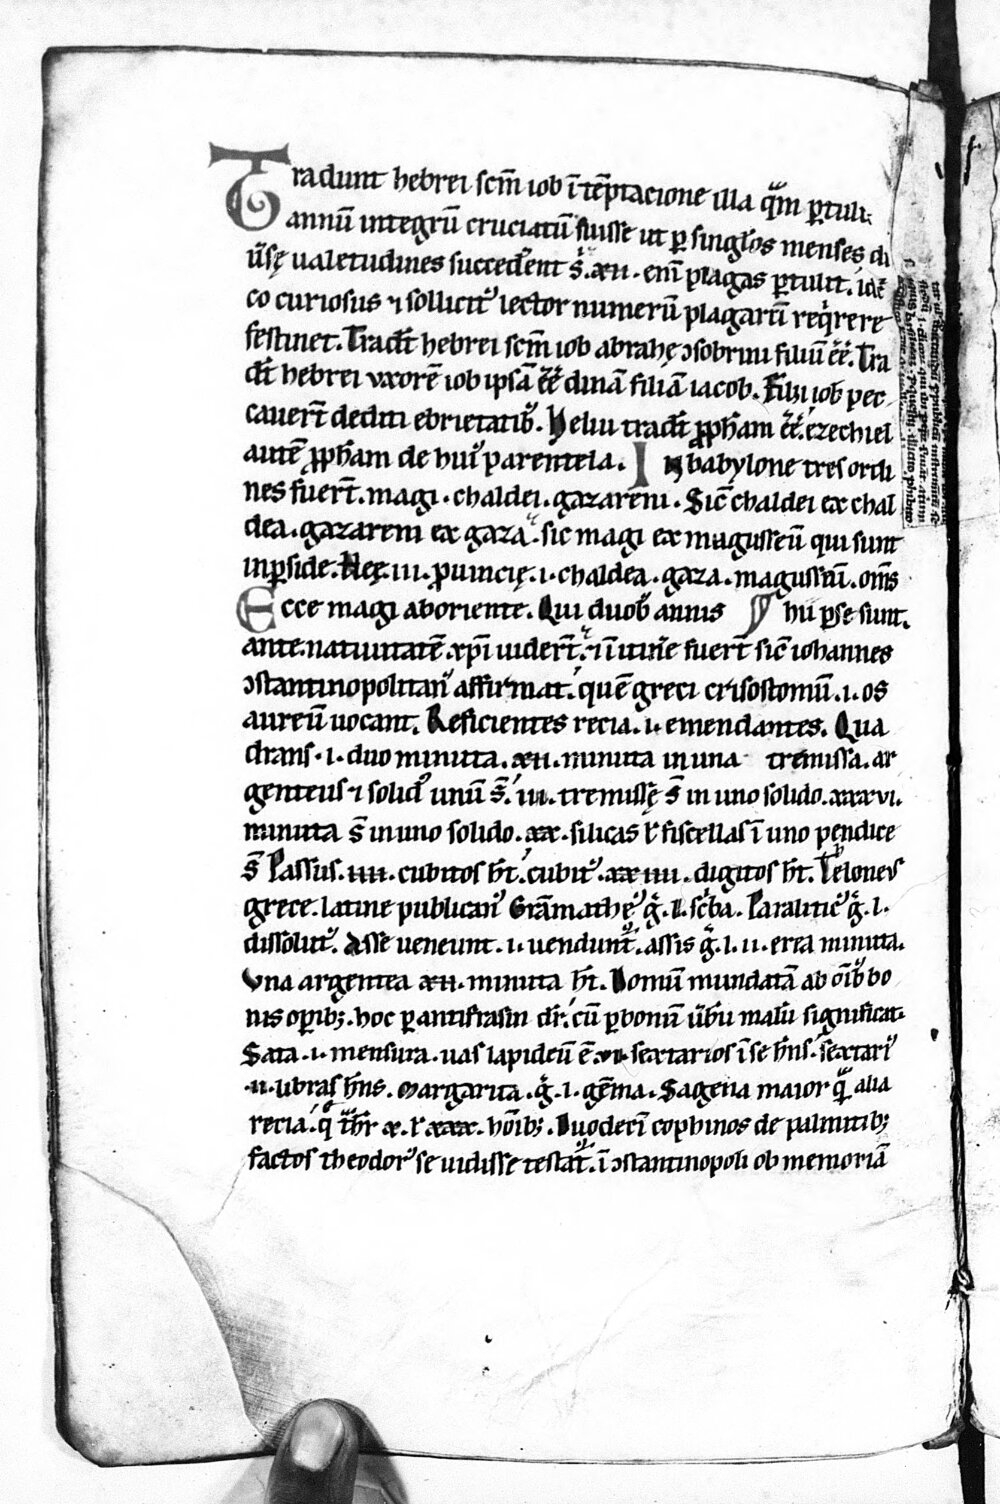 Tradunt hebrei scm̄ iob ī tēptacione illa qͣm ꝑtulit
annū integrū cruciatū fuisse ut ꝑ singlos menses di
ūsę ualetudines succederent ẜ. xii. enī plagas ꝑtulit. idc̄
co curiosus ⁊ sollicitꝰ lector numerū plagarū reqͥrere
festinet. Tradt̄ hebrei scm̄ iob abrahę ↄsobrini filiū ēē. Tra
dt̄ hebrei uxorē iob ipsā ēē dinā filiā iacob. Filii iob pec
cauert̄ dediti ebrietatibꝰ. Heliu tradt̄ ꝓpħam ēē. ezechiel
autē ꝓpħam de huiꝰ parentela. In babylone tres ordi
nes fuert̄. magi. chaldei. gazareni. Sic̄ chaldei ex chal
dea. gazareni ex gaza. sic magi ex magusseū qui sunt
in ꝑside. Hęę. iii. ꝓuincię. i. chaldea. gaza. magussēū. om̄s
Ecce magi ab oriente. Qui duobꝰ annis hii ꝑse sunt.
ante natiuitatē xp̄i uidert̄. ⁊ ī itine fuert̄ sic̄ iohannes
ↄstantinopolitanꝰ affirmat. quē greci crisostomū. i. os
aureū uocant. Reficientes recia. i. emendantes. Qua
drans. i. duo minuta. xii. minuta in una tremissa. ar
genteus ⁊ solidꝰ unū ẜ. iii. tremissę ẜ in uno solido. xxxvi.
minuta ẜ in uno solido. xx. silicas ł fiscellas ī uno pendice
ẜ Passus. iiii. cubitos ħt. cubitꝰ. xxiiii. digitos ħt. Telones
grece. latine publicanꝰ Grāmatheꝰ g̊. l. scͥba. Paraliticꝰ g̊. l.
dissolutꝰ. Asse ueneunt. i. uendunt̄. assis g̊. l. ii. erea minuta.
Una argentea xii. minuta ħt. Domū mundatā ab oīb bo
nis oꝑibꝫ. hoc ꝑ antifrasin dr̄. cū ꝑ bonū ūbū malū significat.
Sata. i. mensura. uas lapideū ē. vii. sextarios ī se ħns. sextariꝰ
.ii. libras ħns. Margarita. g̊. l. gēma. Sagena maior qͣ alia
recia. ħr x. ł xxx. hoībꝫ. Duodecī cophinos de palmitibꝫ
factos theodorꝰ se uidisse testat̄. ī ↄstantinopoli ob memoriā